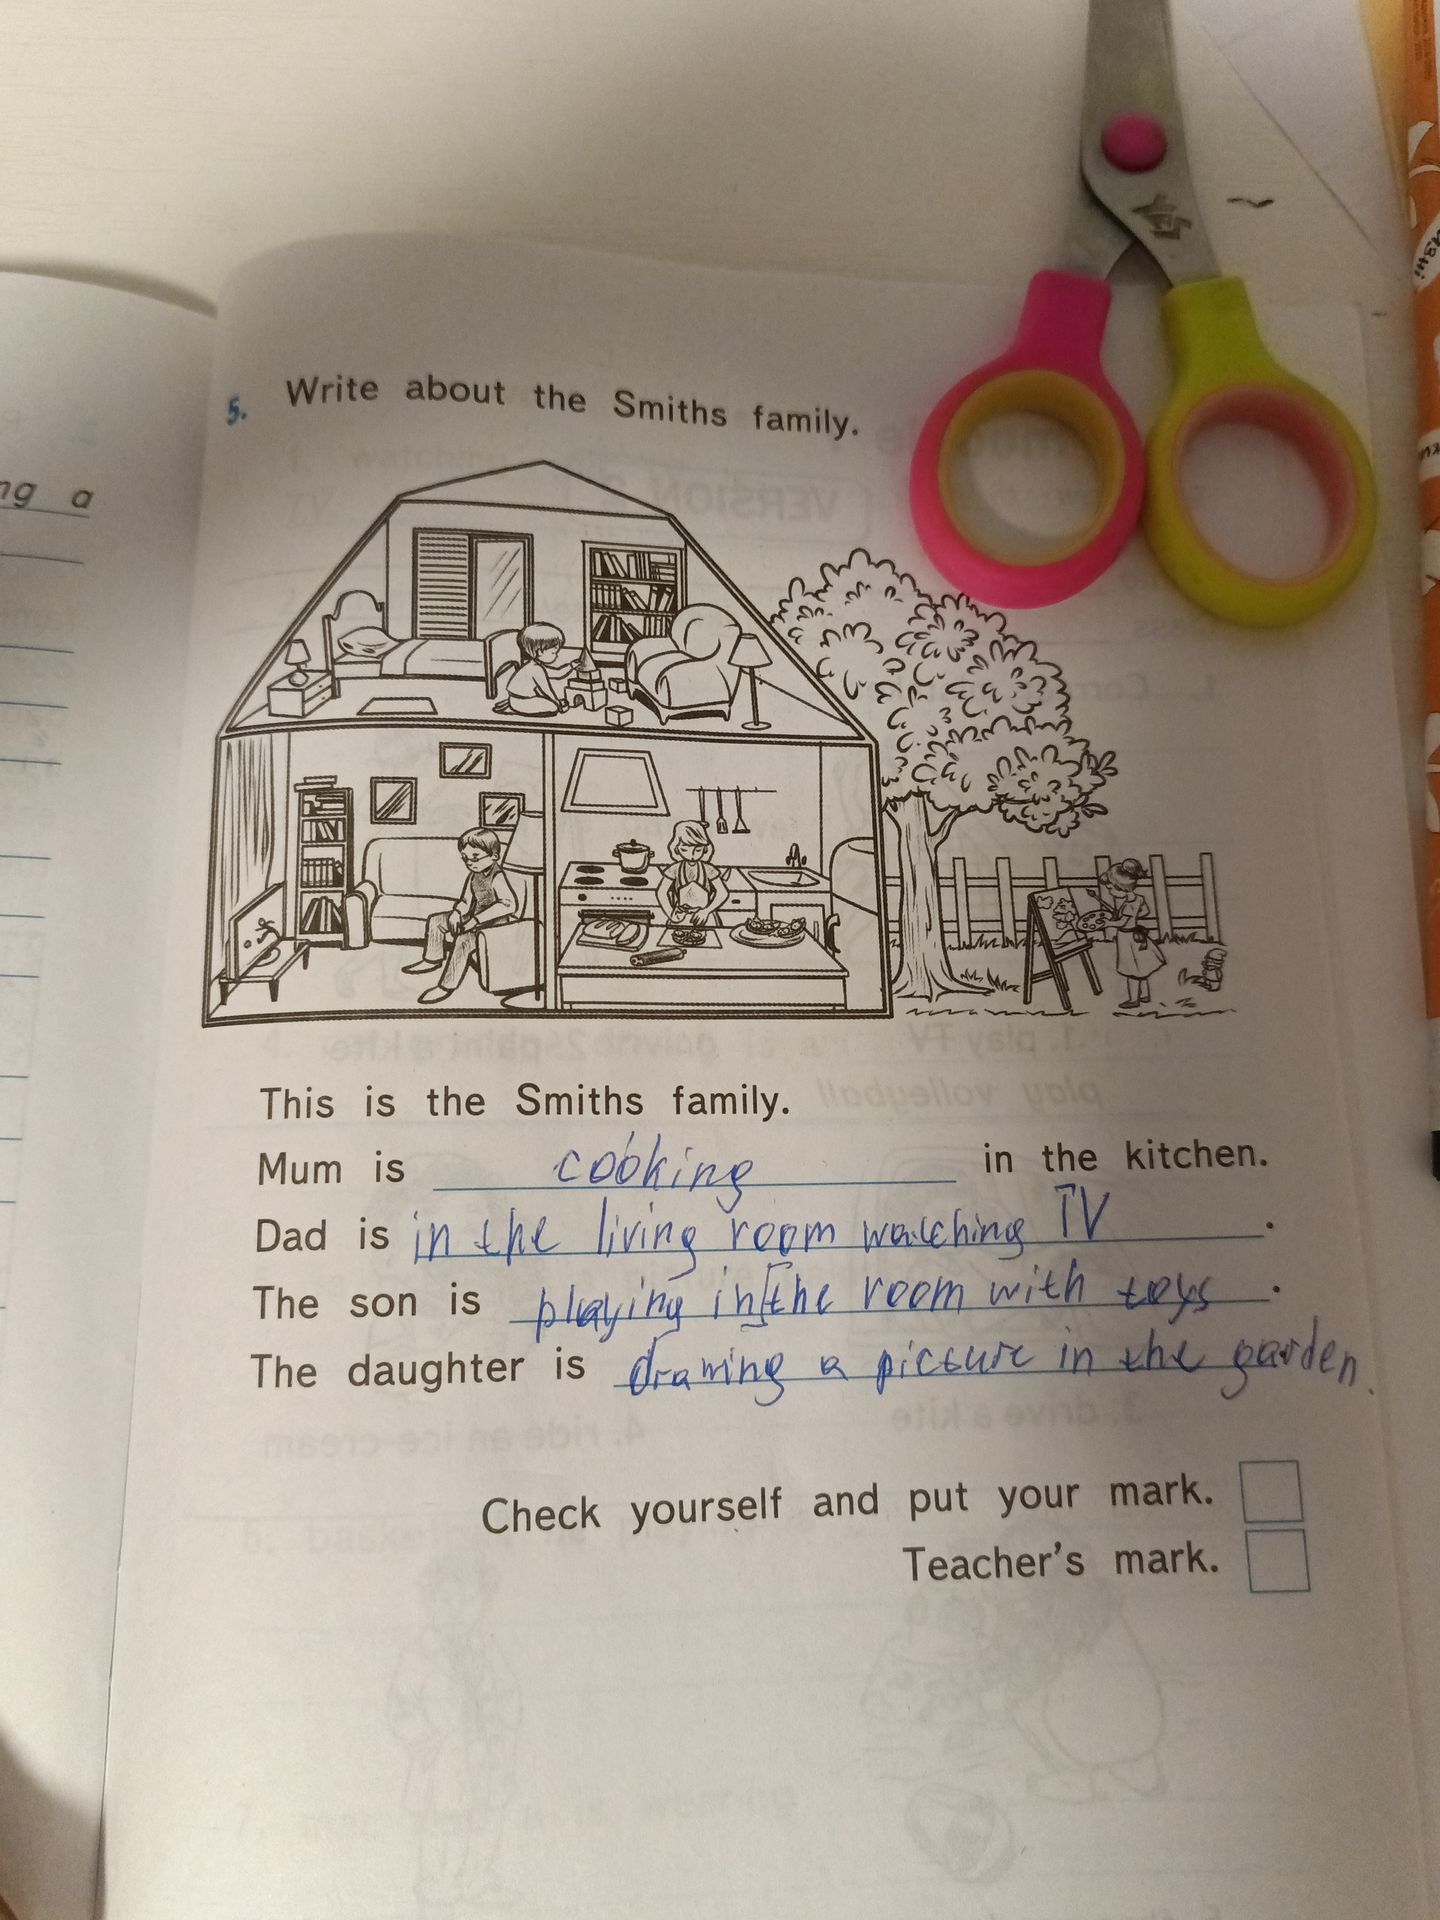 ng a
5. Write about the Smiths family.
This is the Smiths family.
Mum is cooking in the kitchen.
Dad is in the living room watching TV.
The son is playing in the room with toys.
The daughter is drawing a picture in the garden.
Check yourself and put your mark.
Teacher's mark.